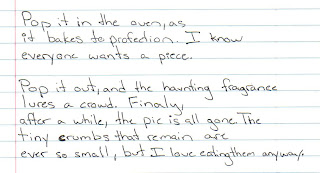 Pop it in the oven, as
it bakes to profection. I know
everyone wants a piece.
Pop it out, and the haunting fragrance
lures a crowd. Finaly,
after a while, the pie is all gone. The
tiny crumbs that remain are
ever so small, but I love eating them anyways.